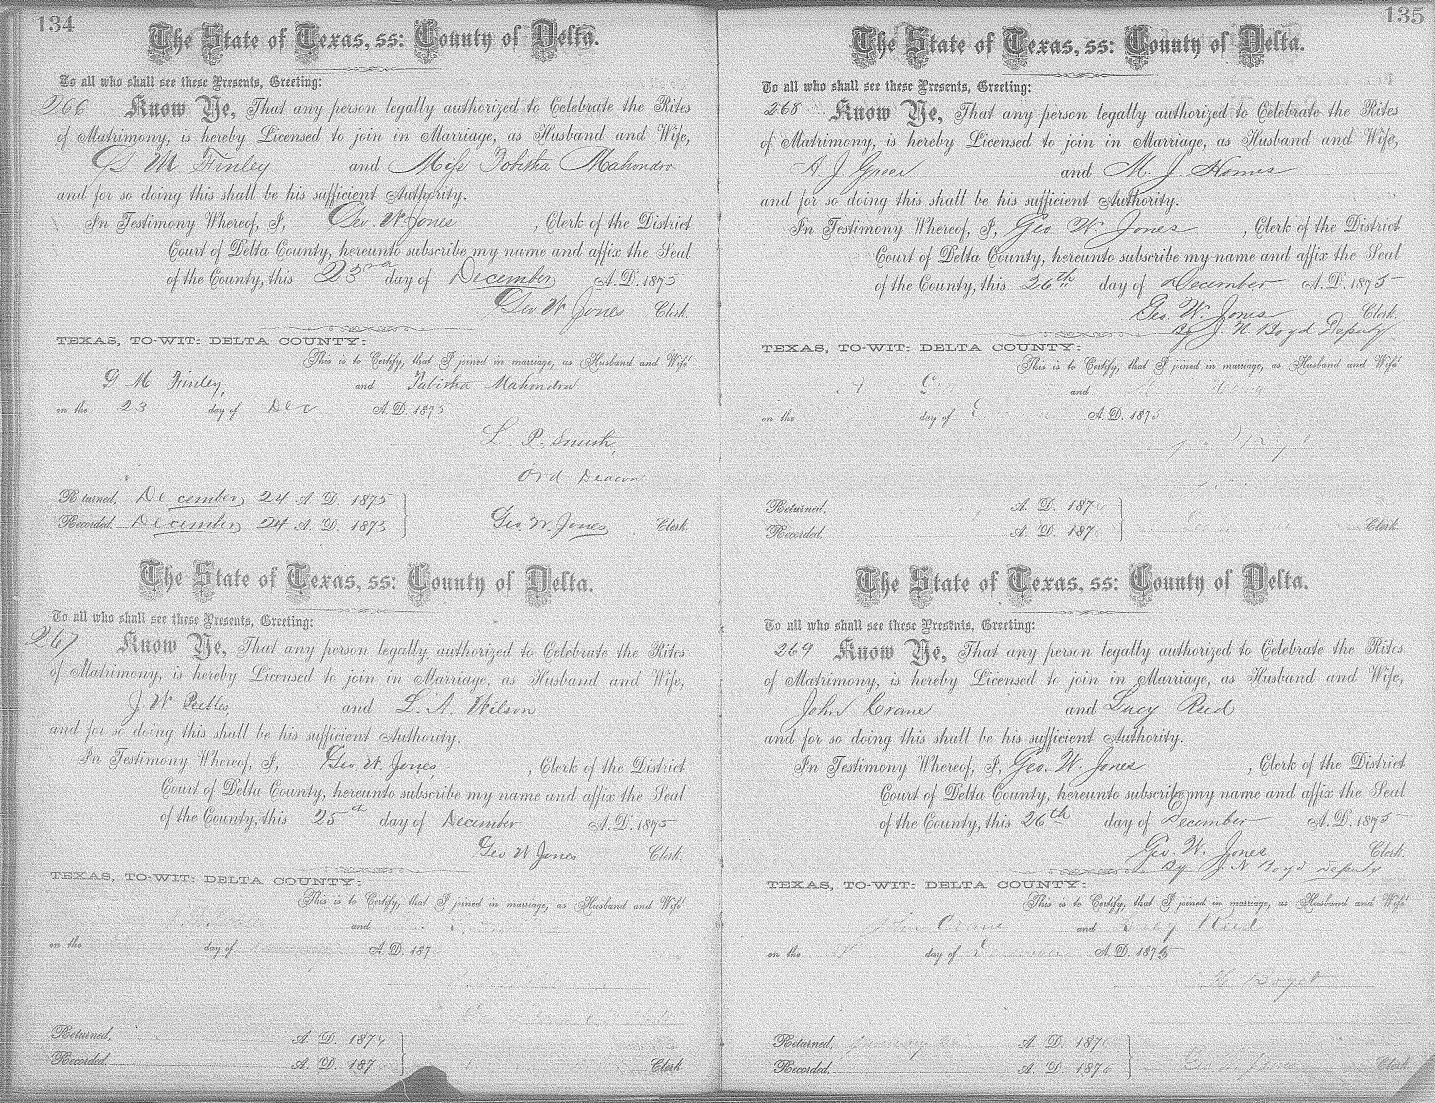 134
The State of Texas, ss: County of Delta.
To all who shall see these Presents, Greeting:
266 Know Ye, That any person legally authorized to Celebrate the Rites
of Matrimony, is hereby Licensed to join in Marriage, as Husband and Wife,
G M Finley and Miss Tobitha Mahondro
and for so doing this shall be his sufficient Authority.
In Testimony Whereof, I, Geo. W. Jones, Clerk of the District
Court of Delta County, hereunto subscribe my name and affix the Seal
of the County, this 23rd day of December A.D. 1875
Geo W Jones Clerk.
TEXAS, TO-WIT: DELTA COUNTY:
This is to Certify, that I joined in marriage, as Husband and Wife
G M Finley, and Tabitha Mahondro
on the 23 day of Dec A.D. 1875
L. P. Smith,
Ord Deacon
Returned, December 24 A. D. 1875
Recorded. December 24 A. D. 1875 Geo. W. Jones Clerk
The State of Texas, ss: County of Delta.
To all who shall see these Presents, Greeting:
267 Know Ye, That any person legally authorized to Celebrate the Rites
of Matrimony, is hereby Licensed to join in Marriage, as Husband and Wife,
J. W Peebles and L. A. Wilson
and for so doing this shall be his sufficient Authority.
In Testimony Whereof, I, Geo. W. Jones, Clerk of the District
Court of Delta County, hereunto subscribe my name and affix the Seal
of the County, this 25th day of December A.D. 1875
Geo W Jones Clerk.
TEXAS, TO-WIT: DELTA COUNTY:
This is to Certify, that I joined in marriage, as Husband and Wife
and
on the day of A.D. 187
Returned, A. D. 187
Recorded. A. D. 187 Clerk
135
The State of Texas, ss: County of Delta.
To all who shall see these Presents, Greeting:
268 Know Ye, That any person legally authorized to Celebrate the Rites
of Matrimony, is hereby Licensed to join in Marriage, as Husband and Wife,
A J Greer and M. J. Homes
and for so doing this shall be his sufficient Authority.
In Testimony Whereof, I, Geo W Jones, Clerk of the District
Court of Delta County, hereunto subscribe my name and affix the Seal
of the County, this 26th day of December A.D. 1875
Geo. W. Jones Clerk.
By J. N. Boyd Deputy
TEXAS, TO-WIT: DELTA COUNTY:
This is to Certify, that I joined in marriage, as Husband and Wife
and
on the day of A.D. 1875
Returned, A. D. 187
Recorded. A. D. 187 Clerk
The State of Texas, ss: County of Delta.
To all who shall see these Presents, Greeting:
269 Know Ye, That any person legally authorized to Celebrate the Rites
of Matrimony, is hereby Licensed to join in Marriage, as Husband and Wife,
John Crane and Lucy Reed
and for so doing this shall be his sufficient Authority.
In Testimony Whereof, I, Geo. W. Jones, Clerk of the District
Court of Delta County, hereunto subscribe my name and affix the Seal
of the County, this 26th day of December A.D. 1875
Geo. W. Jones Clerk.
By J. N Boyd Deputy
TEXAS, TO-WIT: DELTA COUNTY:
This is to Certify, that I joined in marriage, as Husband and Wife
John Crane and Lucy Reed
on the day of A.D. 1875
Returned, January A. D. 187
Recorded. A. D. 187 Geo W Jones Clerk